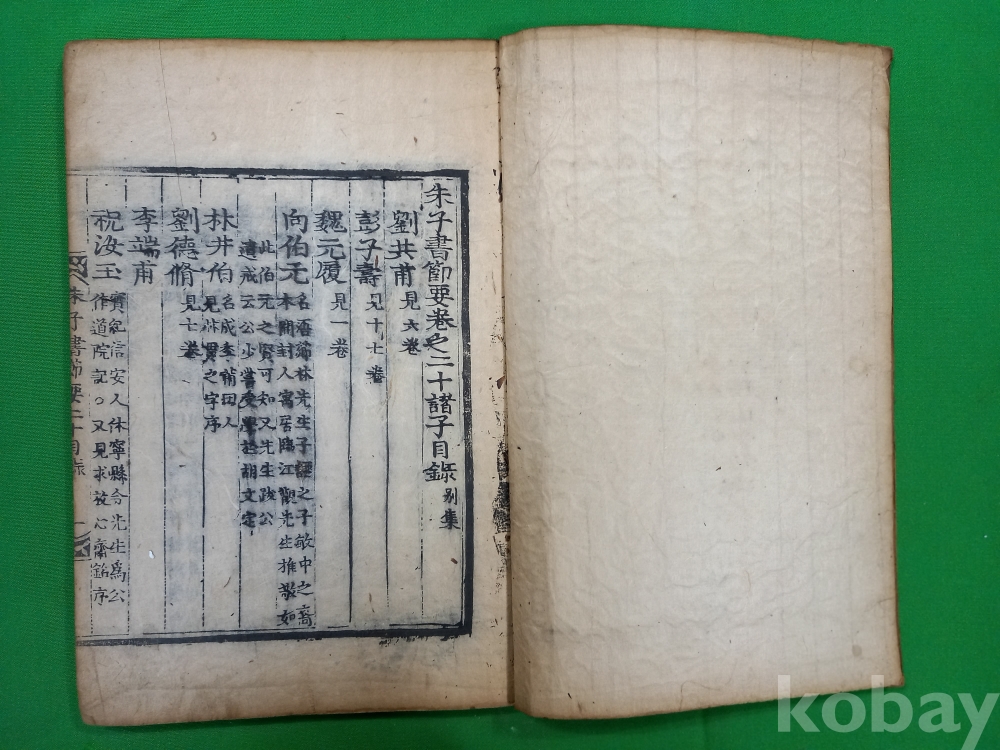 朱子書節要卷之二十諸子目錄 別集
劉共甫 見六卷
彭子壽 見十七卷
魏元履 見一卷
向伯元 名 薌林先生子 之子敏中之裔
本開封人寓居臨江觀先生推敬如
此伯元之賢可知又先生跋公
遺戒云公少嘗受學於胡文定
林井伯 名成季莆田人
見 之字序
劉德脩 見七卷
李端甫
祝汝玉 實紀信安人休寧縣令先生爲公
作道院記○又見求放心齋銘序
朱子書節要二十目錄 一
kobay